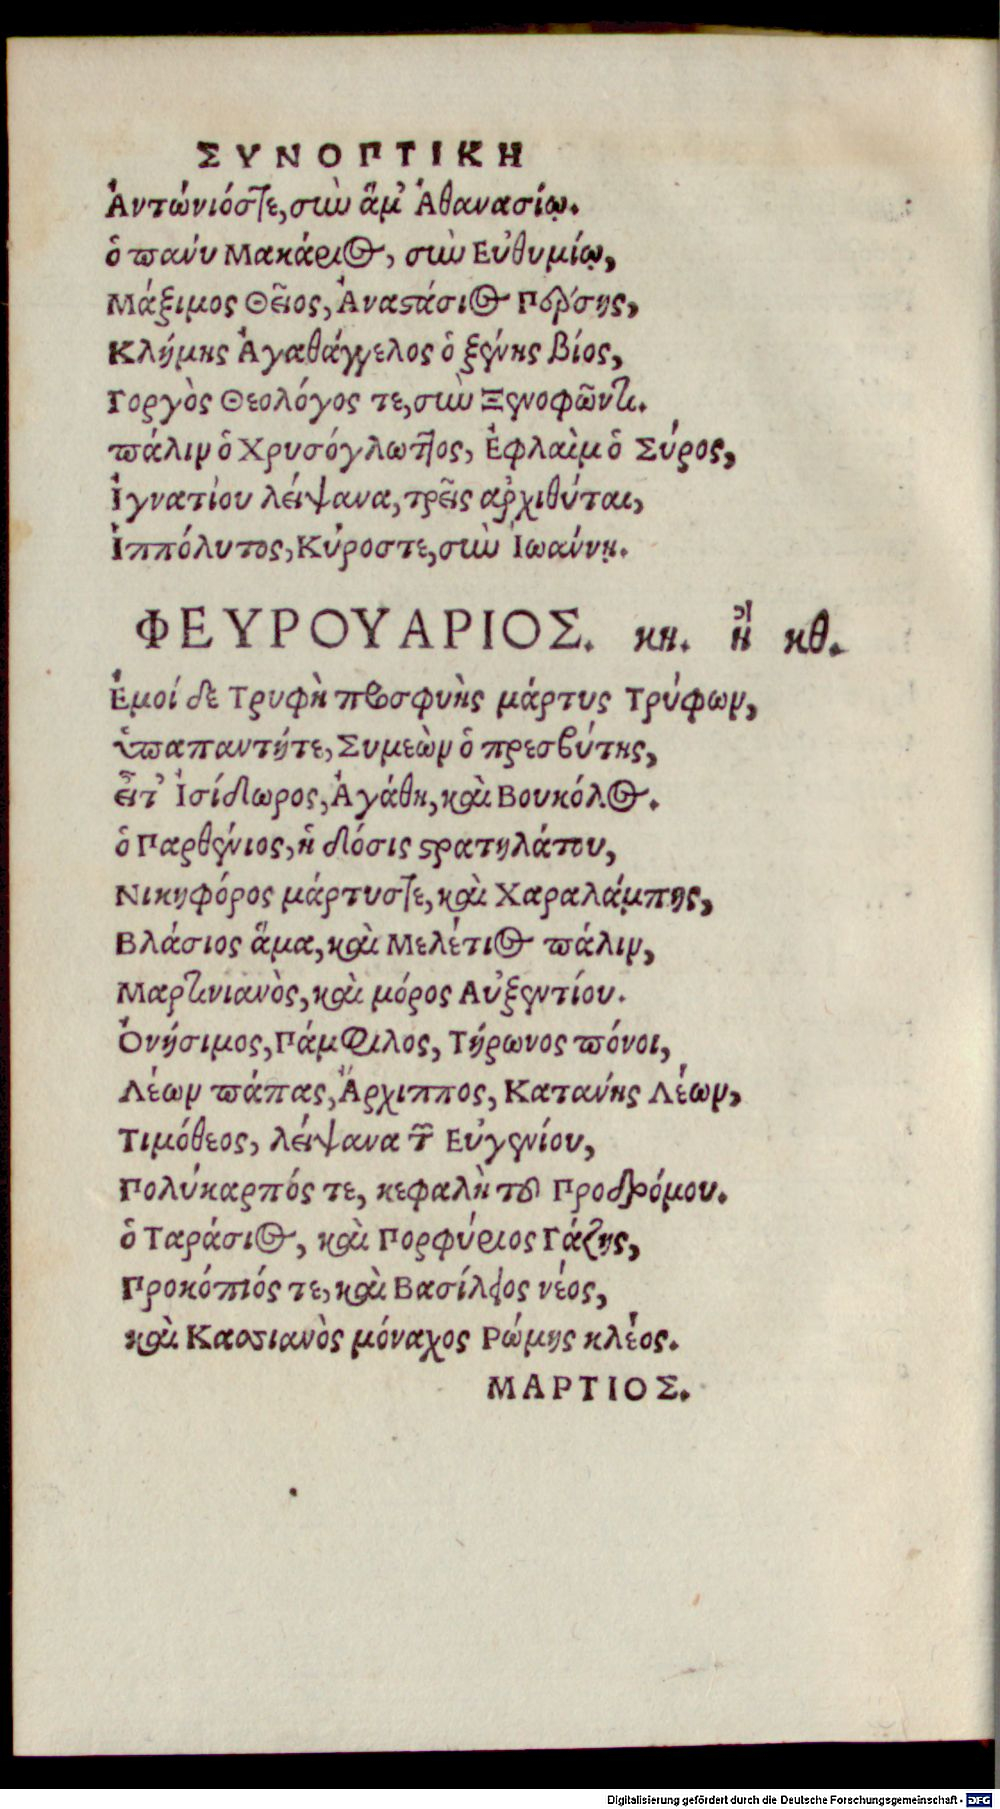 ΣΥΝΟΠΤΙΚΗ
Ἀντώνιόστε, σὺν ἅμ' Ἀθανασίῳ.
ὁ πάνυ Μακάριος, σὺν Εὐθυμίῳ,
Μάξιμος Θεῖος, Ἀναστάσιος Πέρσης,
Κλήμης Ἀγαθάγγελος ὁ ξένης βίος,
Γοργὸς Θεολόγος τε, σὺν Ξενοφῶντι.
πάλιν ὁ Χρυσόγλωττος, Ἐφραὶμ ὁ Σύρος,
Ἰγνατίου λείψανα, τρεῖς ἀρχιθύται,
Ἱππόλυτος, Κύροστε, σὺν Ἰωάννῃ.
ΦΕΥΡΟΥΑΡΙΟΣ. κη. ἢ κθ.
Ἐμοί δε Τρυφὴ προσφυὴς μάρτυς Τρύφων,
ὑπαπαντήτε, Συμεὼν ὁ πρεσβύτης,
εἶτ' Ἰσίδωρος, Ἀγάθη, καὶ Βουκόλος.
ὁ Παρθένιος, ἡ δόσις στρατηλάτου,
Νικηφόρος μάρτυστε, καὶ Χαραλάμπης,
Βλάσιος ἅμα, καὶ Μελέτιος πάλιν,
Μαρτινιανὸς, καὶ μόρος Αὐξεντίου.
Ὀνήσιμος, Πάμφιλος, Τήρωνος πόνοι,
Λέων πάπας, Ἄρχιππος, Κατάνης Λέων,
Τιμόθεος, λείψανα τῶν Εὐγενίου,
Πολύκαρπός τε, κεφαλὴ τοῦ Προδρόμου.
ὁ Ταράσιος, καὶ Πορφύριος Γάζης,
Προκόπιός τε, καὶ Βασίλειος νέος,
καὶ Κασσιανὸς μόναχος Ρώμης κλέος.
ΜΑΡΤΙΟΣ.
Digitalisierung gefördert durch die Deutsche Forschungsgemeinschaft - DFG